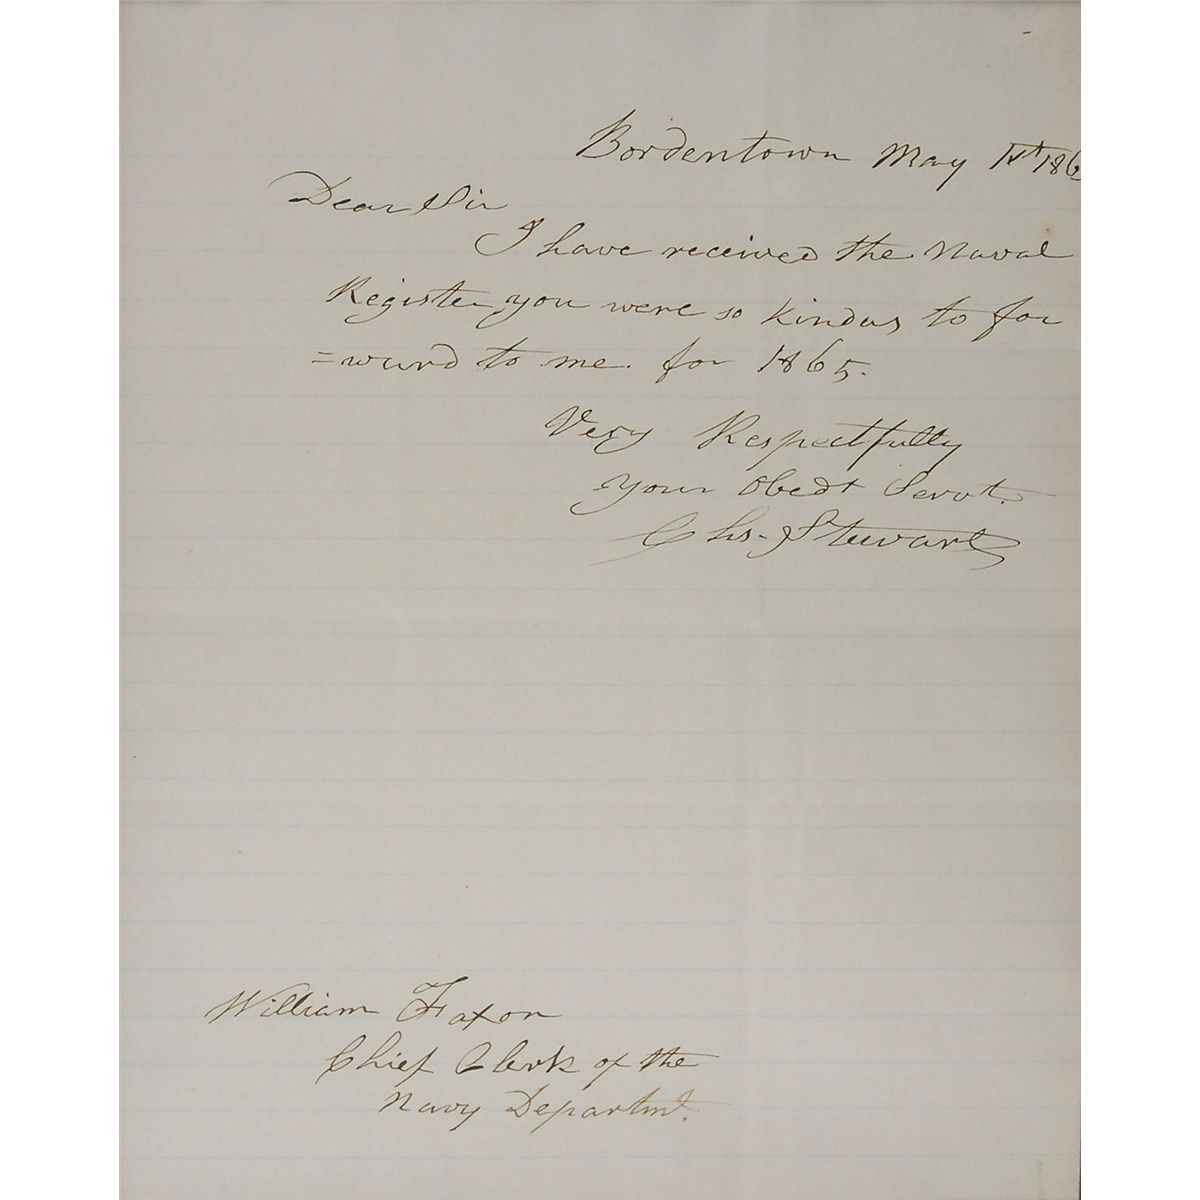 Bordentown May 186
Dear Sir
I have received the Naval
Register you were so kind as to for
=ward to me. for 1865.
Very Respectfully
Your Obedt Servt.
Chs. Stewart
William Faxon
Chief Clerk of the
Navy Departmt.